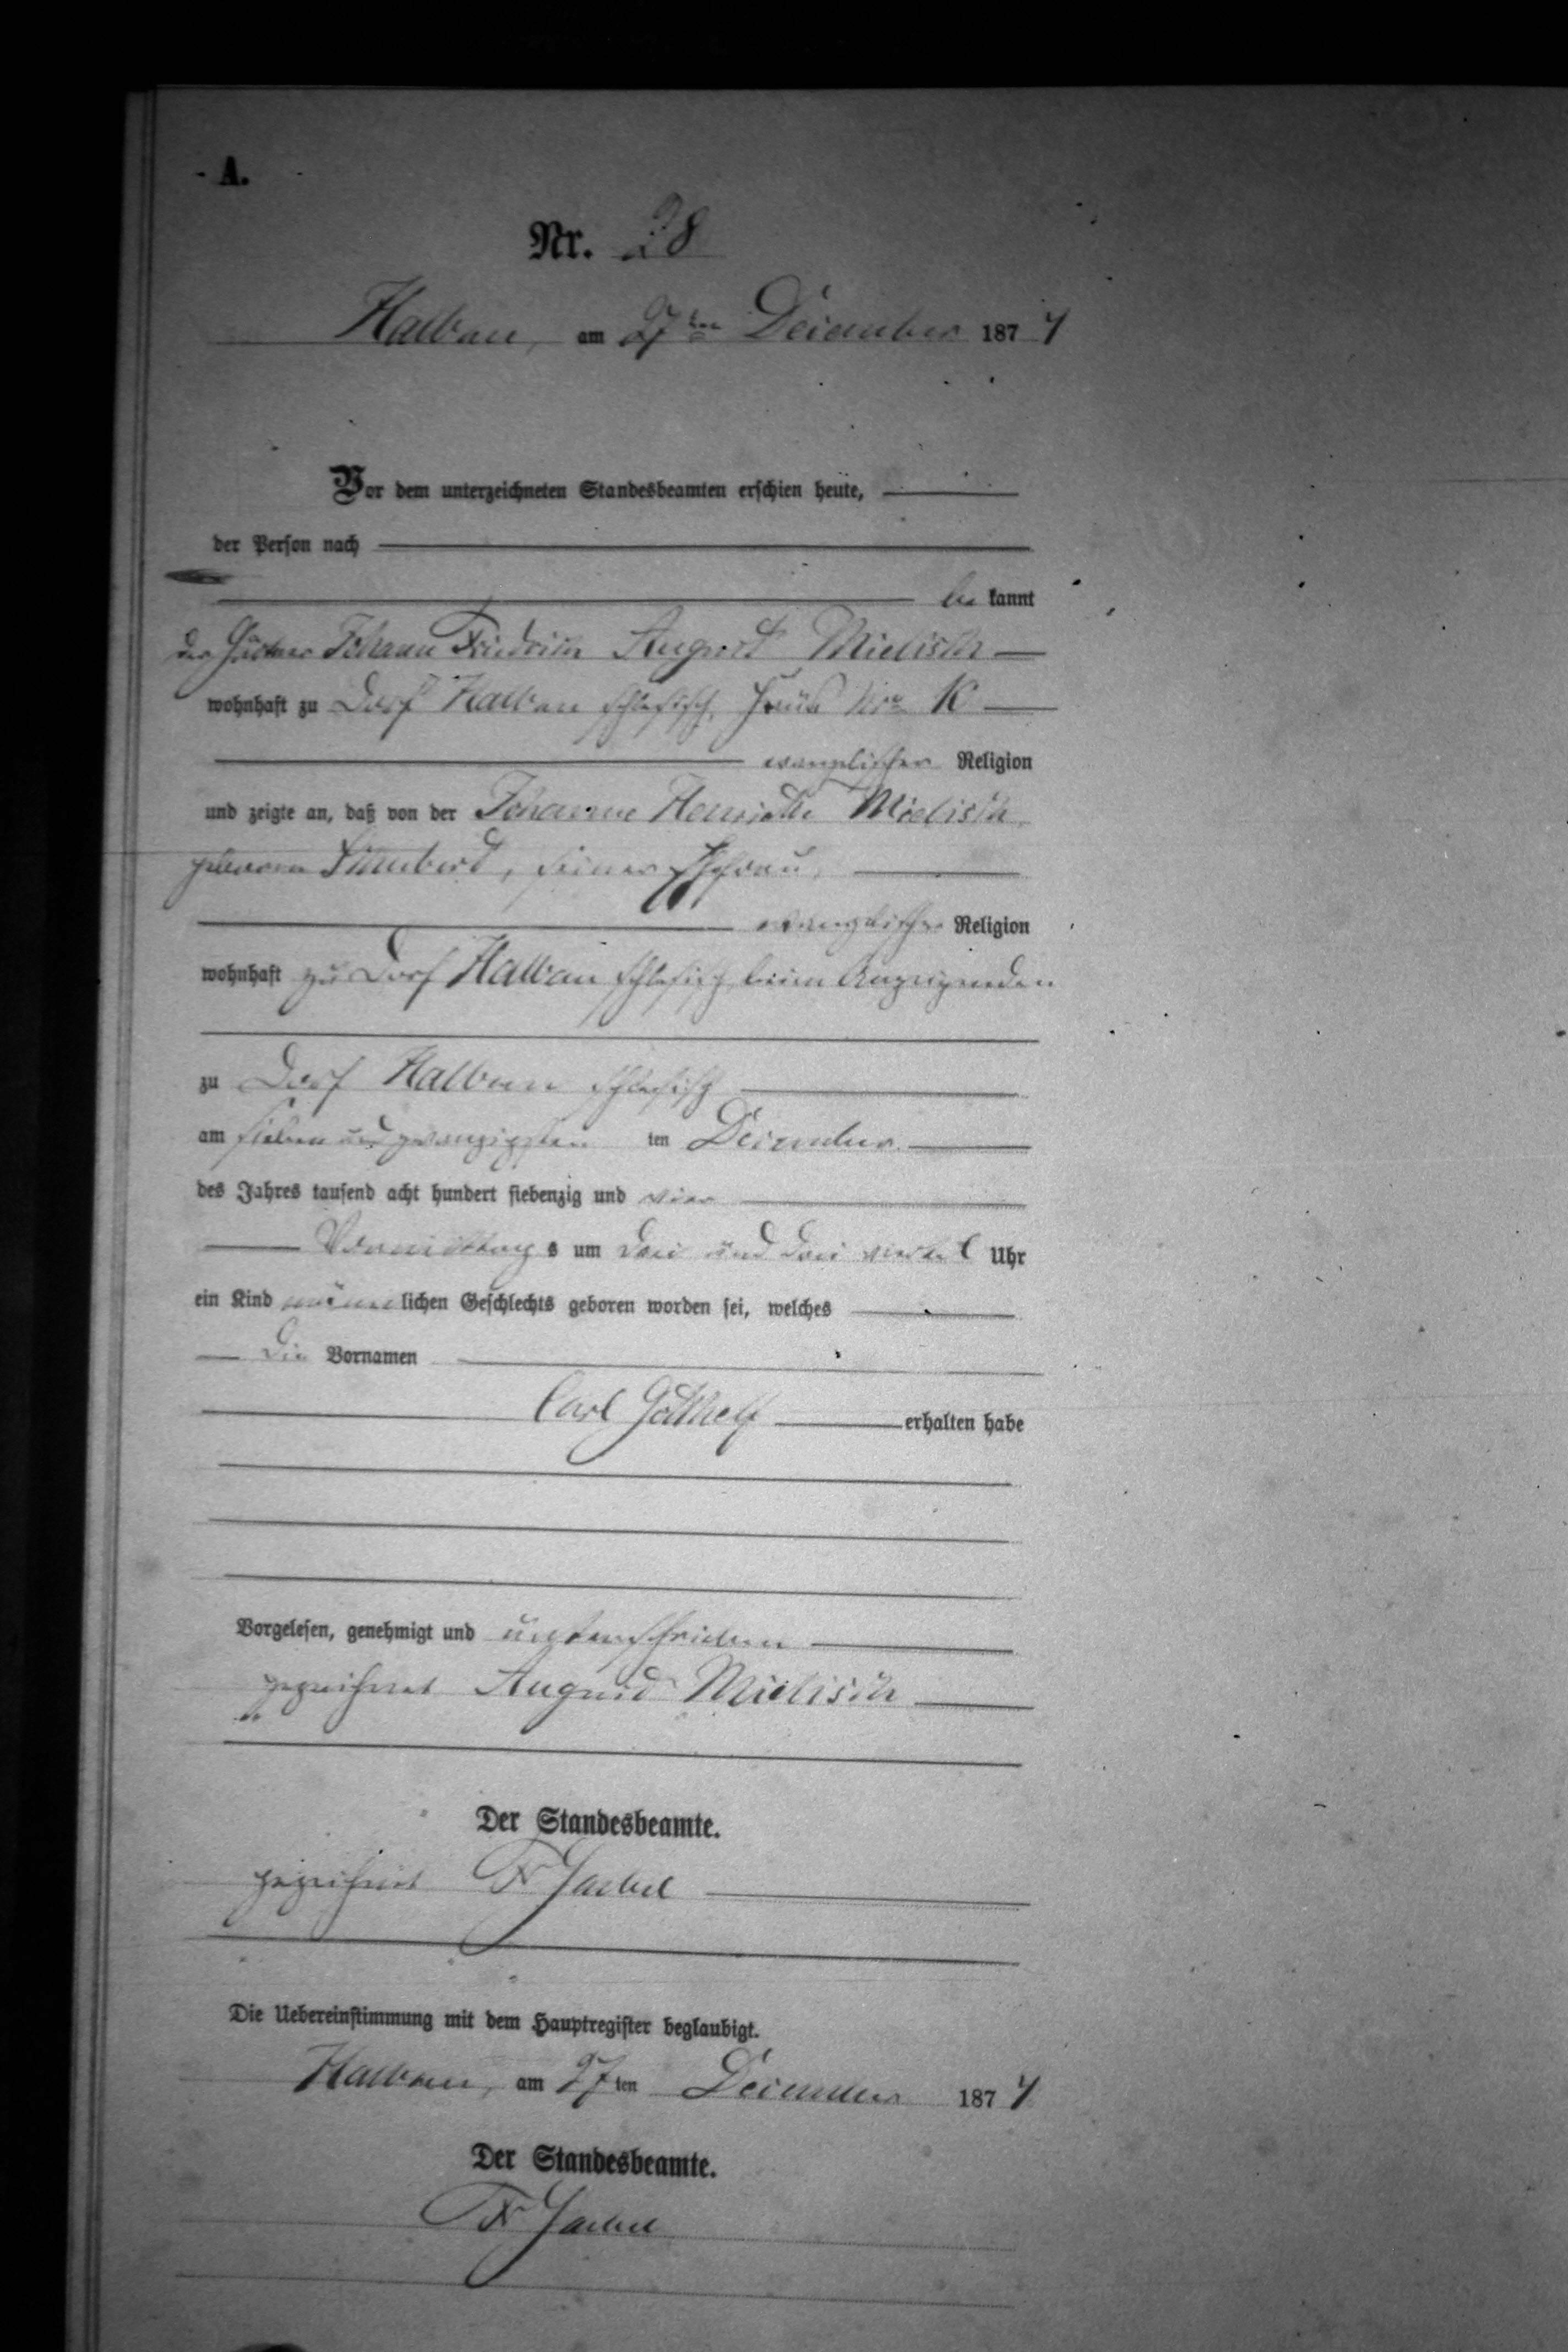 A.
Nr. 28
Halbau, am 27ten December 1874
Vor dem unterzeichneten Standesbeamten erschien heute,
der Person nach
be kannt
der Gärtner Johann Friedrich August Mielisch
wohnhaft zu Dorf Halbau schlesisch, Haus Nro
evangelischer Religion
und zeigte an, daß von der Johanne Henriette Mielisch
geborene seiner Ehefrau,
evangelischer Religion
wohnhaft zu Dorf Halbau schlesisch beim Anzeigenden
zu Dorf Halbau schlesisch
am sieben und zwanzigsten ten December
des Jahres tausend acht hundert siebenzig und vier
Vormittags um drei und drei viertel Uhr
ein Kind männlichen Geschlechts geboren worden sei, welches
die Vornamen
Carl Gotthelf erhalten habe
Vorgelesen, genehmigt und unterschrieben
gezeichnet August Mielisch
Der Standesbeamte.
gezeichnet Fr
Die Uebereinstimmung mit dem Hauptregister beglaubigt.
Halbau, am 27ten December 1874
Der Standesbeamte.
Fr